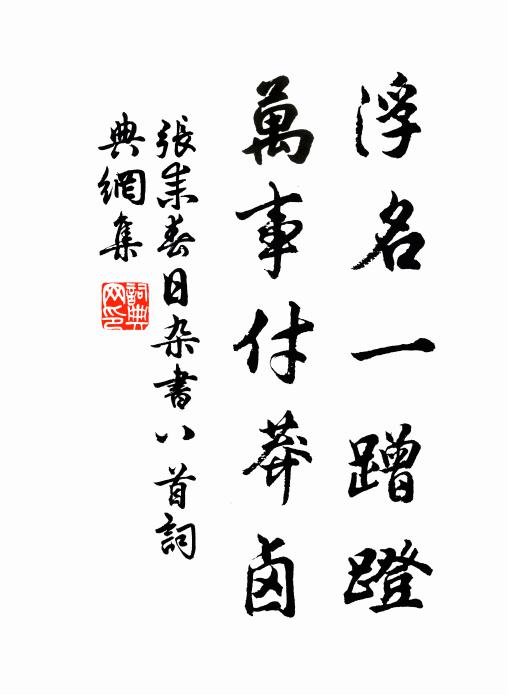 浮名一蹭蹬
萬事付莽鹵
張耒春日杂書八首詞
典網集
詞典網印